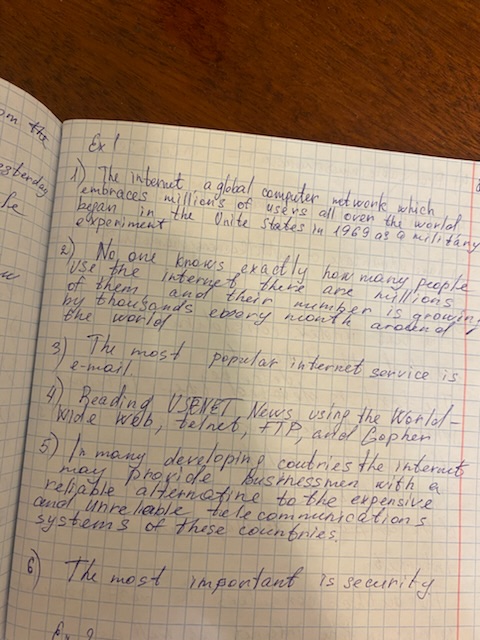 om the
esterday
le
w
Ex 1
1) The internet a global computer network which
embraces millions of users all over the world
began in the Unite States in 1969 as a military
experiment
2) No one knows exactly how many people
use the internet there are millions
of them and their number is growing
by thousands every month around
the world
3) The most popular internet service is
e-mail.
4) Reading USENET News using the World-
Wide Web, telnet, FTP, and Gopher
5) In many developing coutries the internet
may provide businessmen with a
reliable alternatine to the expensive
and unreliable telecommunications
systems of these countries.
6) The most important is security